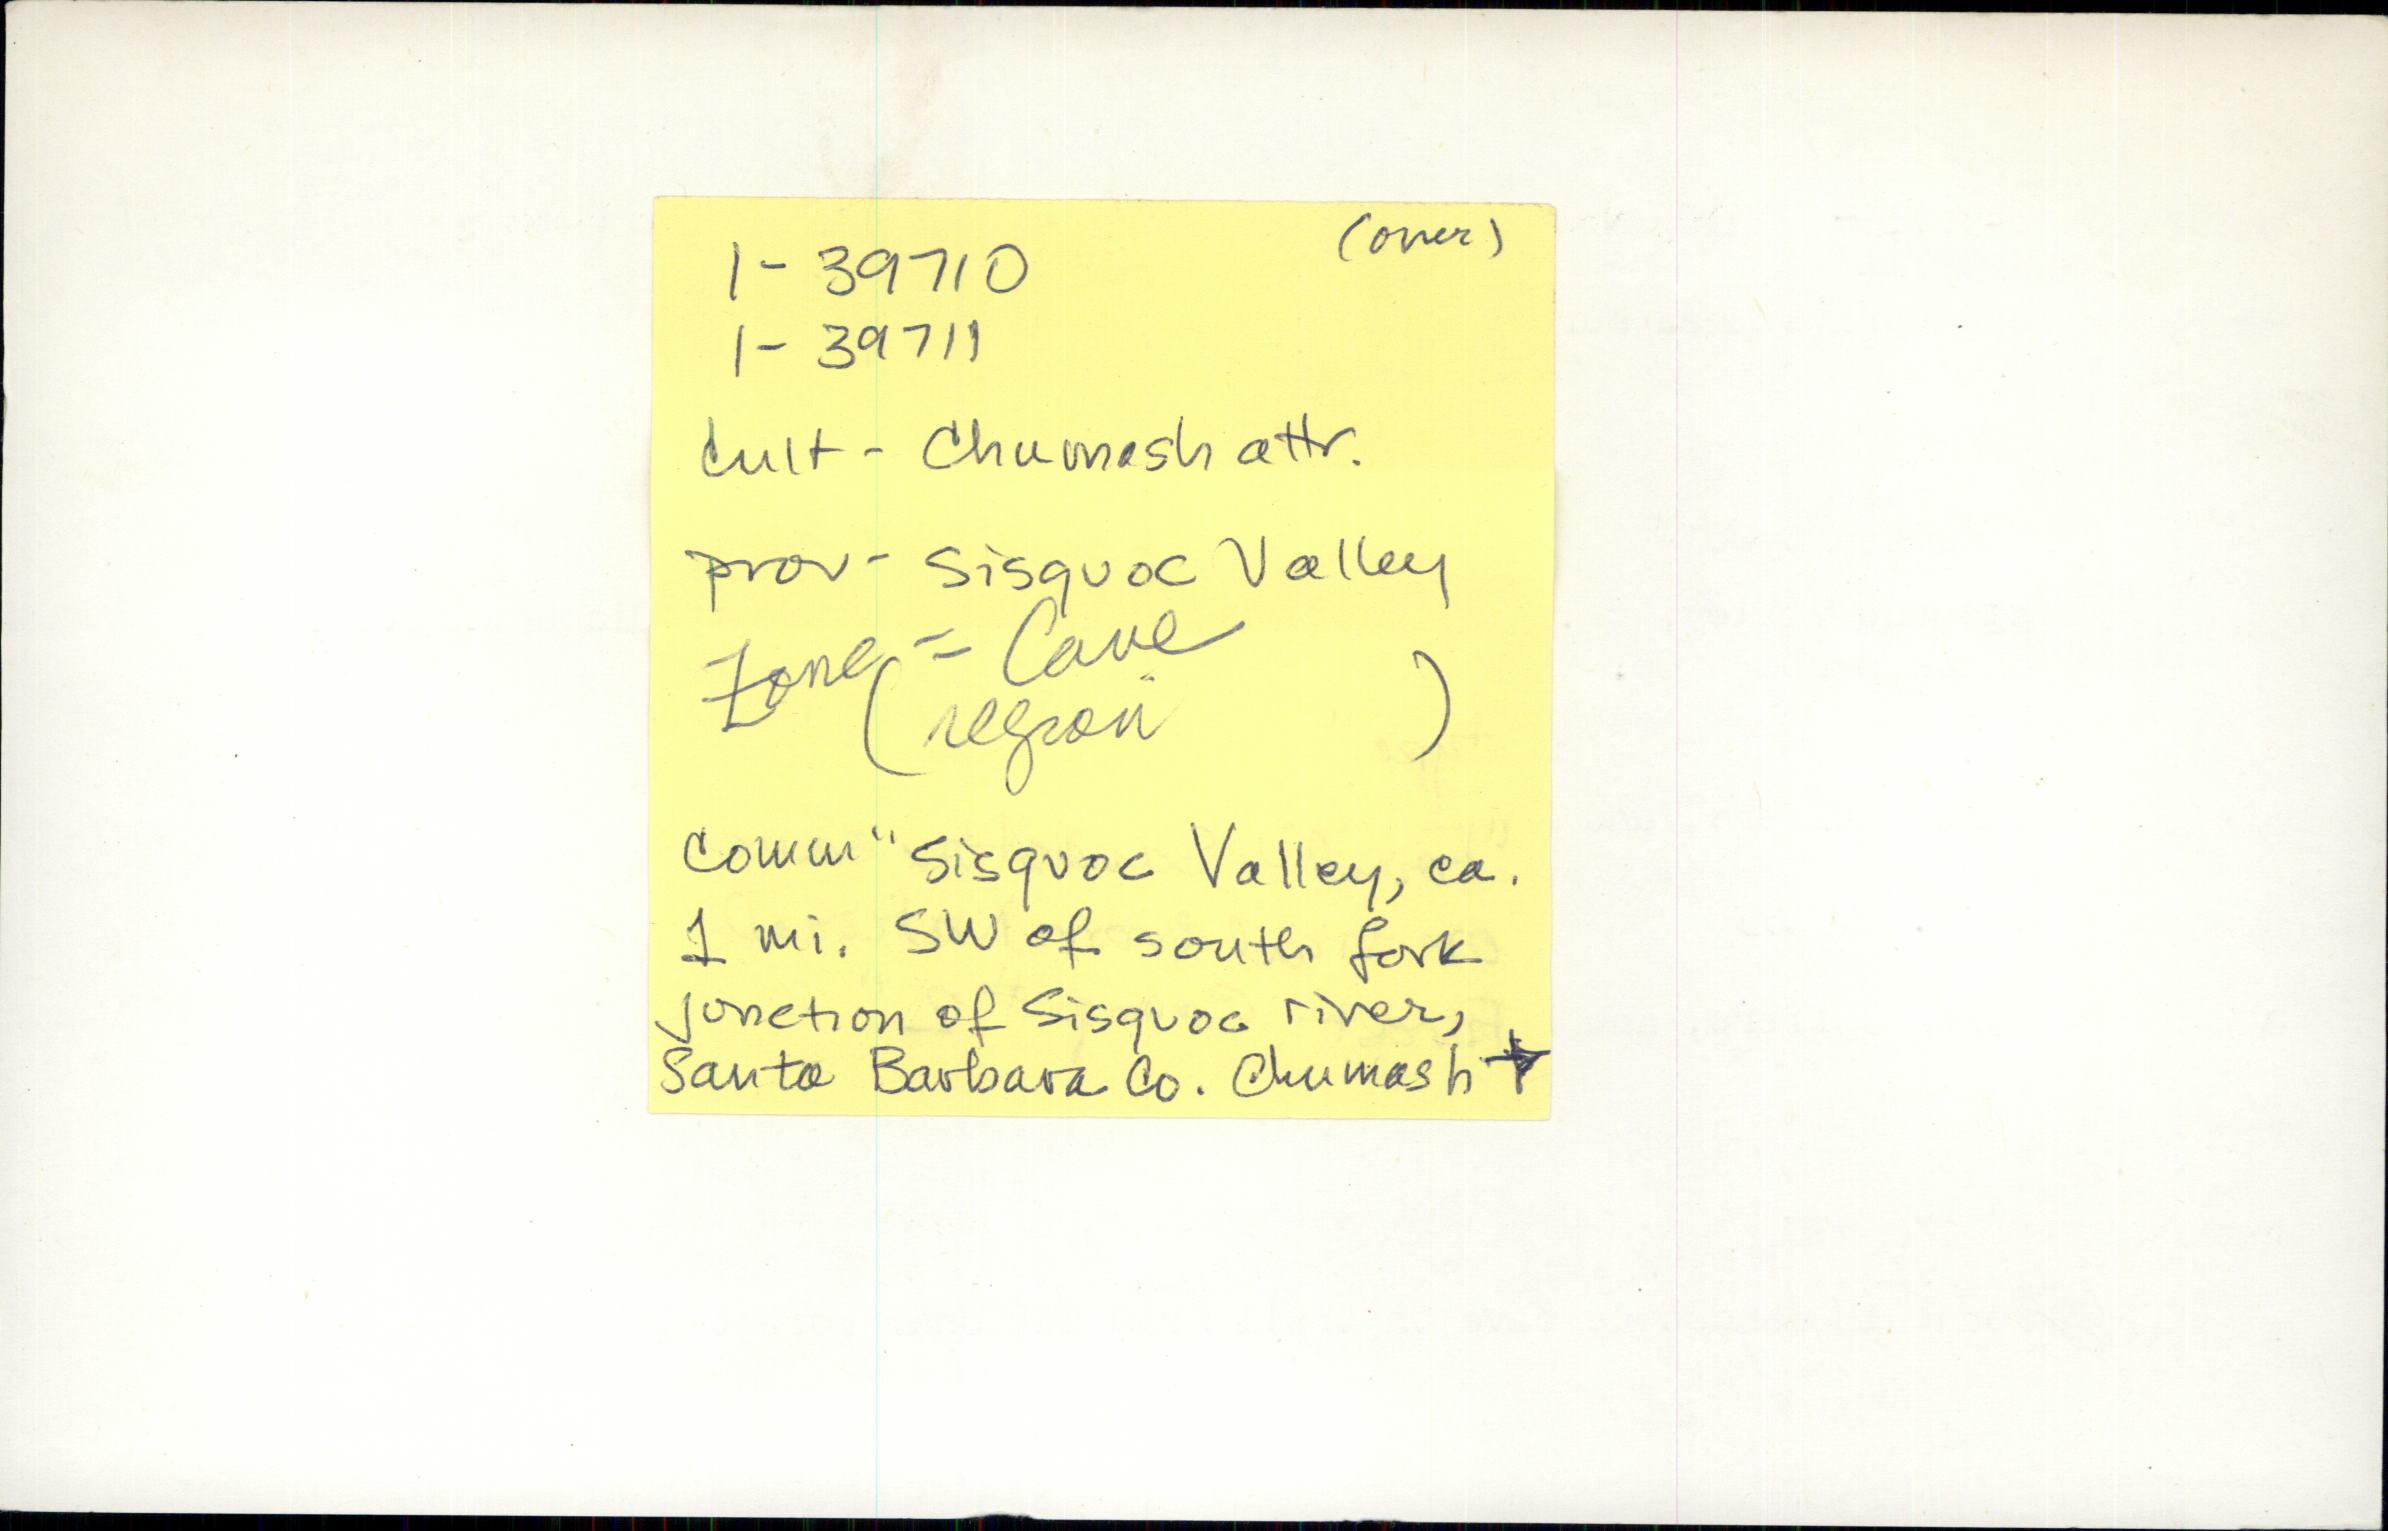 (over)
1-39710
1-39711
Cult- Chumash attr.
prov- Sisquoc Valley
Zone = Cave
(region )
Comm " Sisquoc Valley, ca.
1 mi. SW of south fork
junction of Sisquoc river,
Santa Barbara Co. Chumash